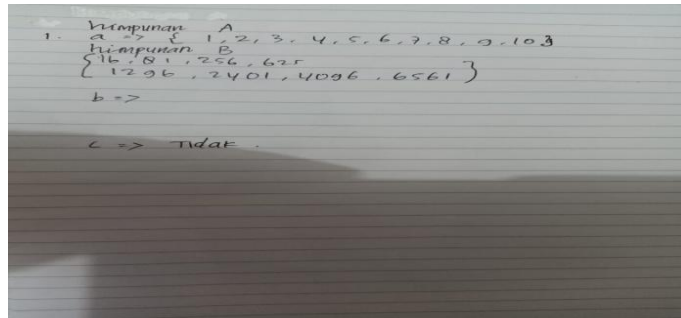 himpunan A
1. a => { 1, 2, 3, 4, 5, 6, 7, 8, 9, 10}
himpunan B
{ 16, 81, 256, 625
1296, 2401, 4096, 6561 }
b =>
c => Tidak.